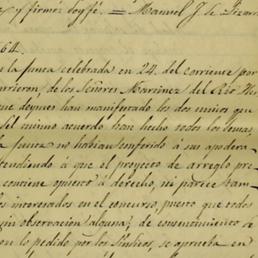 y firmó doy fé. = Manuel J. de Lizar
64.
la junta celebrada en 24. del corriente por
urrieron, de los Señores Martinez del Rio Her
que deynes han manifestado los dos unicos que
el mismo acuerdo han hecho todos los demas
la junta no habian conferido á sus apodera
tendiendo á que el proyecto de arreglo pre
contiene opuesto á derecho, ni parece tam
los interesados en el concurso, puesto que todos
observacion alguna; de consentimiento
on lo pedido por los Síndicos, se aprueba en